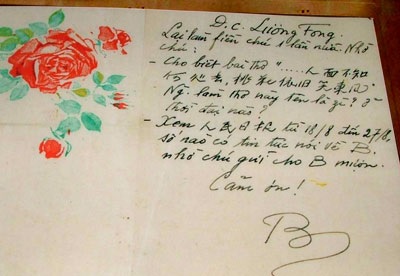 Đ.c. Lương Fong.
Lại làm fiền chú 1 lần nữa. Nhờ
chú:
- Cho biết bài thơ "......人面不知
何处去, 桃花依旧笑東风"
Ng. làm thơ này tên là gì? ở
thời đại nào?
- Xem 人民日报 từ 18/8 đến 27/8,
số nào có tin tức nói về B.
nhờ chú gửi cho B mượn.
Cảm ơn!
B